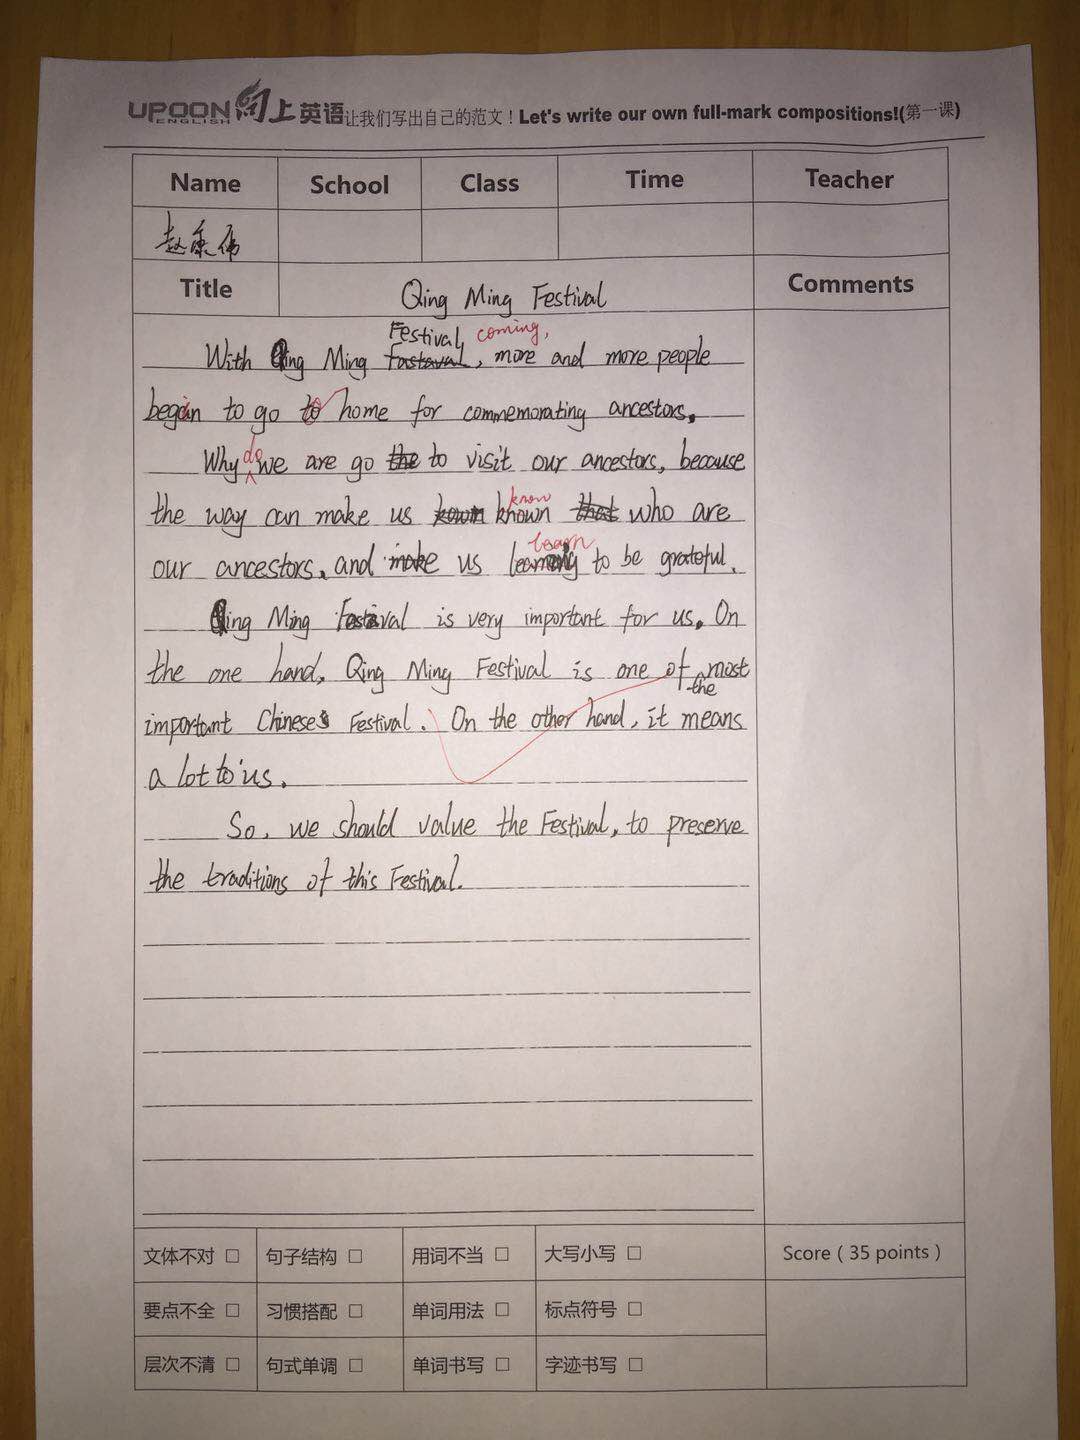 UPOON ENGLISH 向上英语 让我们写出自己的范文！Let's write our own full-mark compositions!(第一课)
Name School Class Time Teacher
赵康伟
Title Qing Ming Festival Comments
Festival coming,
With Qing Ming fastaval, more and more people
began to go to home for commemorating ancestors.
do
Why we are go the to visit our ancestors, because
know
the way can make us known known that who are
learn
our ancestors, and make us learning to be grateful.
Qing Ming Festival is very important for us. On
the one hand, Qing Ming Festival is one of most
the
important Chinese Festival. On the other hand, it means
a lot to us.
So, we should value the Festival, to preserve
the traditions of this Festival.
文体不对 □ 句子结构 □ 用词不当 □ 大写小写 □ Score（35 points）
要点不全 □ 习惯搭配 □ 单词用法 □ 标点符号 □
层次不清 □ 句式单调 □ 单词书写 □ 字迹书写 □